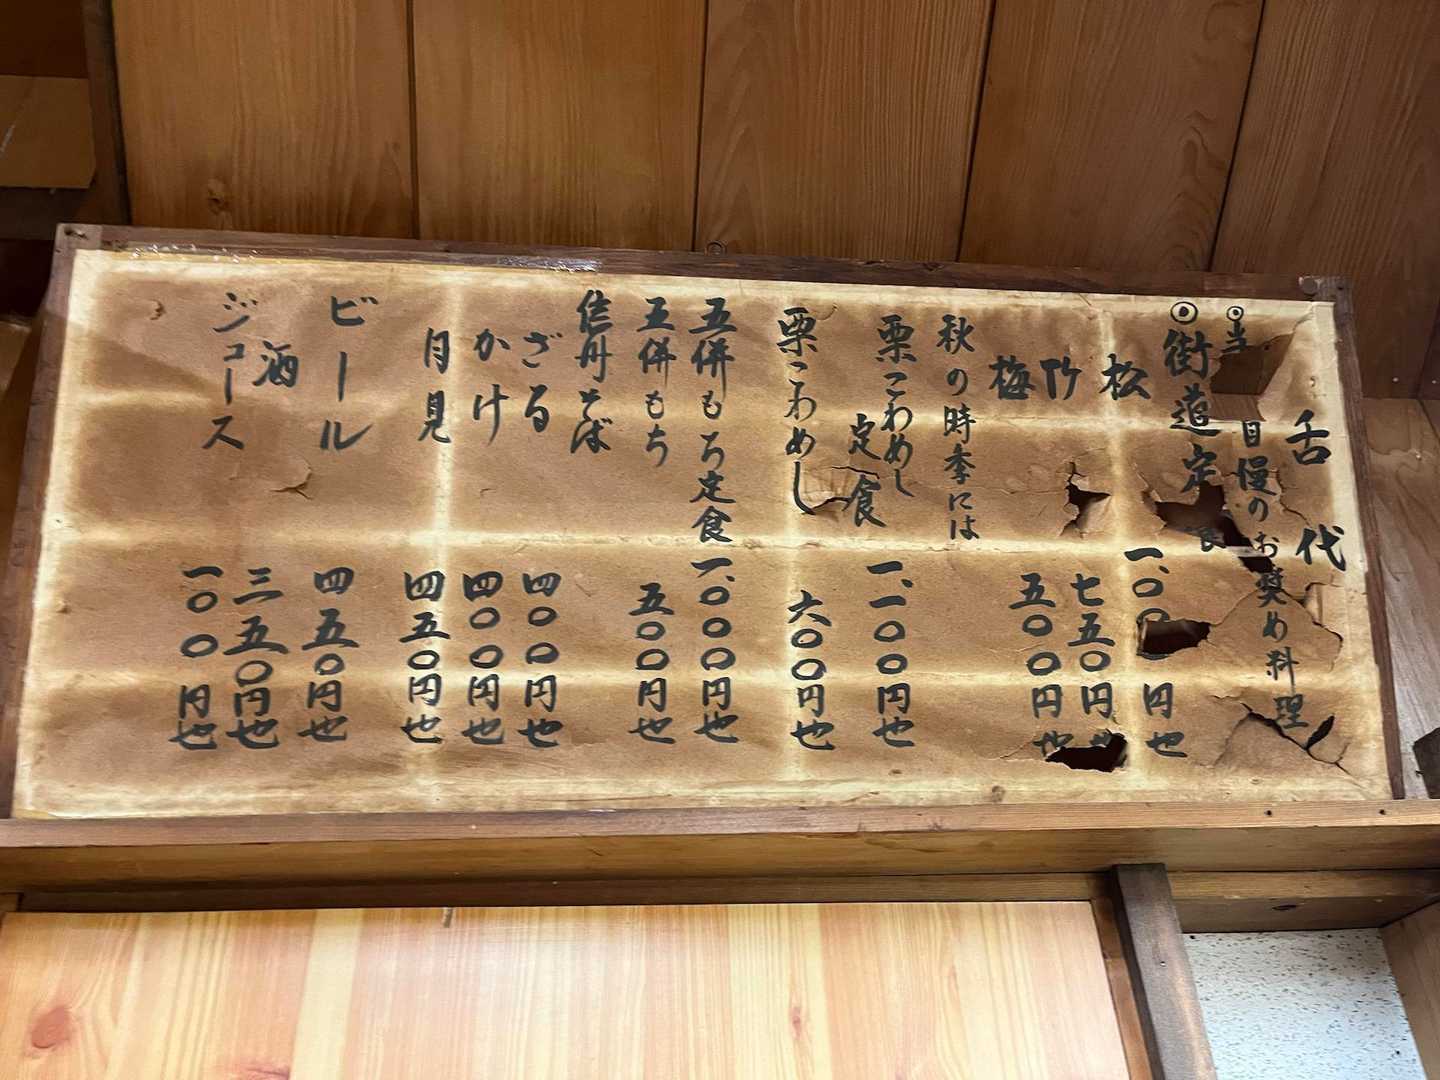 舌代
◎当 自慢のお奨め料理
◎街道定食
松 一、〇〇〇円也
竹 七五〇円也
梅 五〇〇円也
秋の時季には
栗こわめし定食 一、一〇〇円也
栗こわめし 六〇〇円也
五併もち定食 一、〇〇〇円也
五併もち 五〇〇円也
信州そば
ざる 四〇〇円也
かけ 四〇〇円也
月見 四五〇円也
ビール 四五〇円也
酒 三五〇円也
ジュース 一〇〇円也